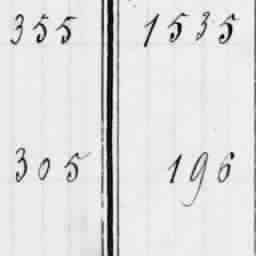 355 1535
305 196